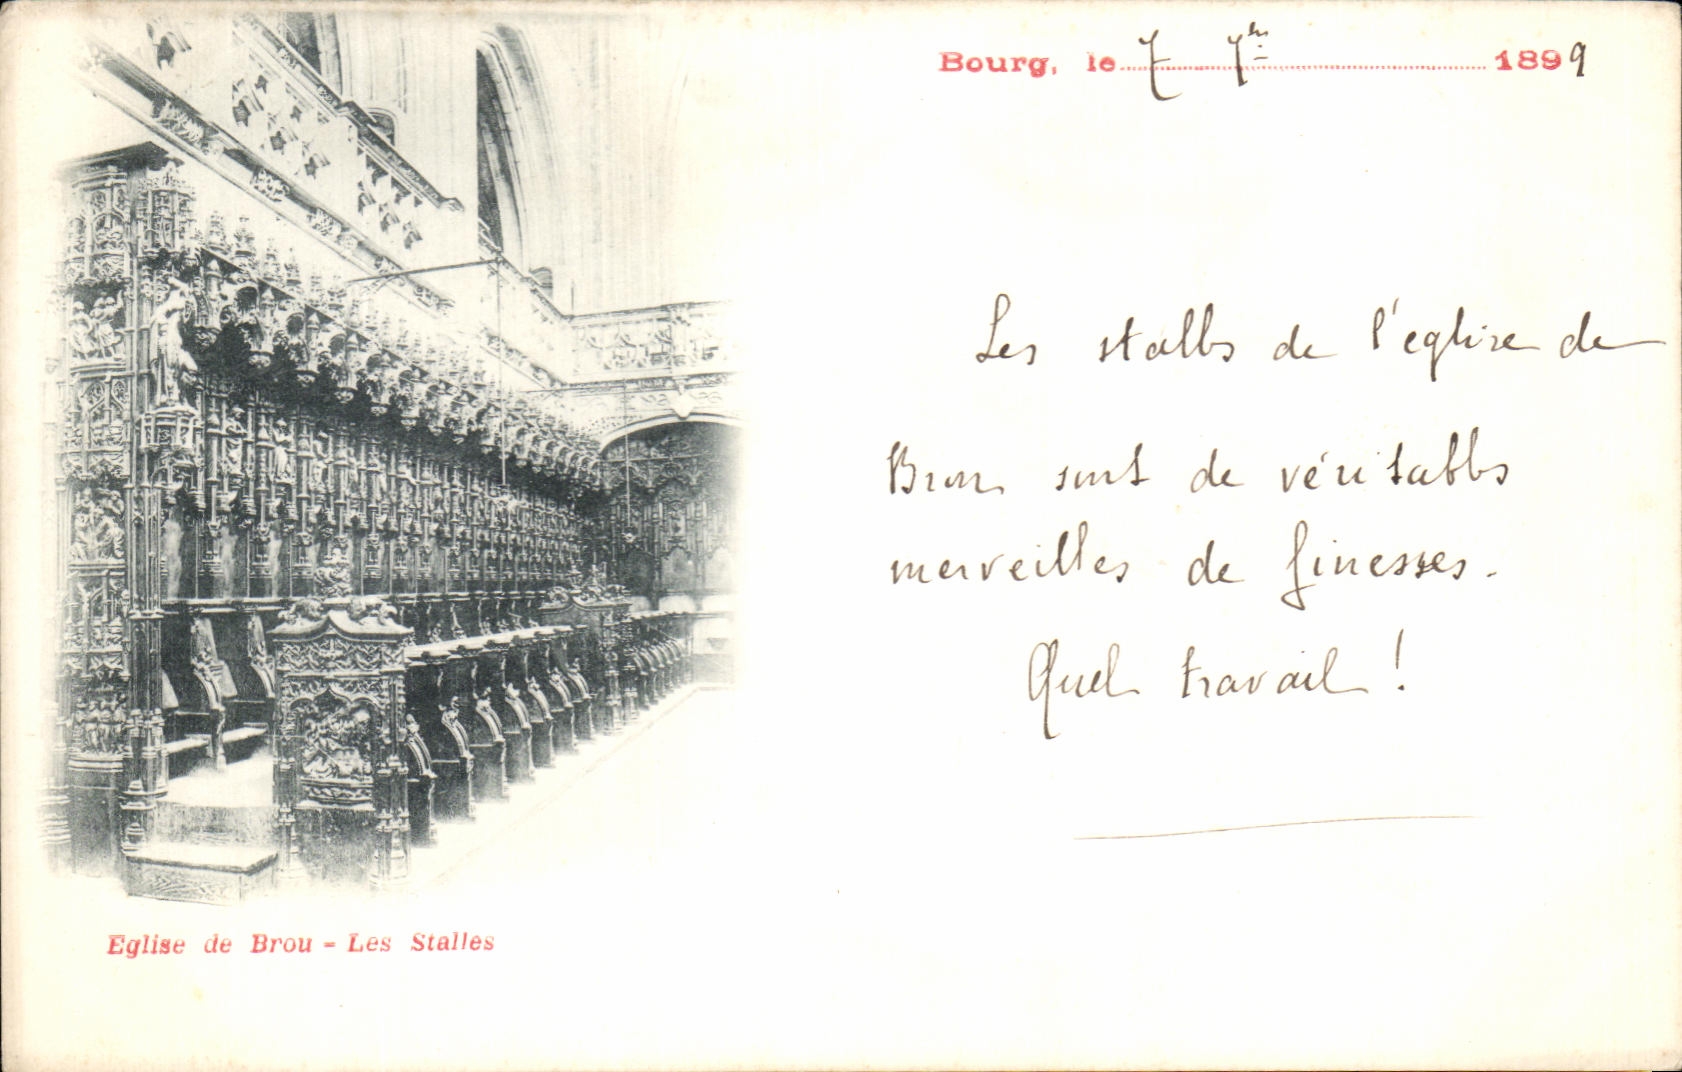 Bourg, le 7 7bre 1899
Les stalles de l'église de
Brou sont de véritables
merveilles de finesses.
Quel travail !
Eglise de Brou - Les Stalles